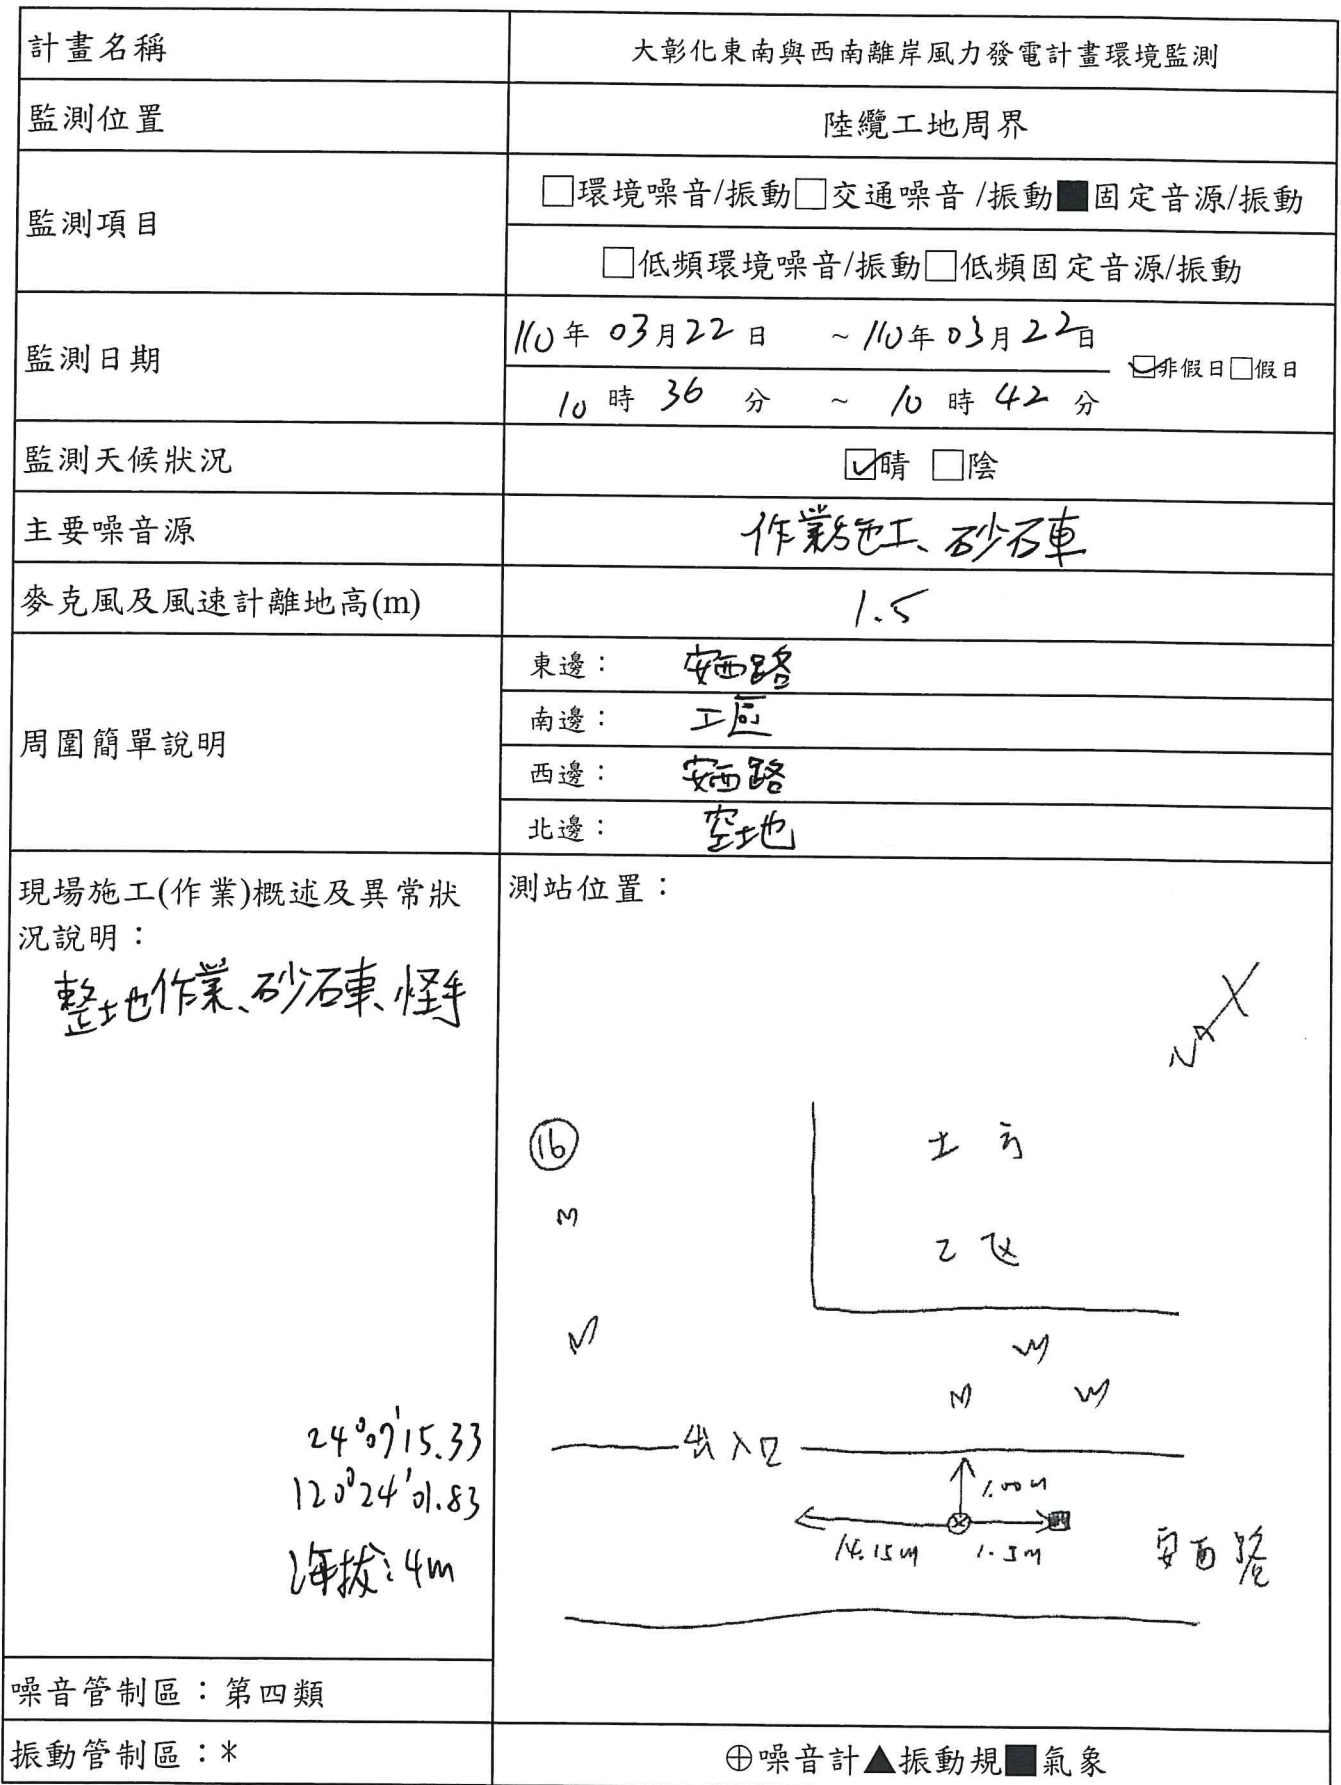 計畫名稱
大彰化東南與西南離岸風力發電計畫環境監測
監測位置
陸纜工地周界
監測項目
□環境噪音/振動□交通噪音 /振動■固定音源/振動
□低頻環境噪音/振動□低頻固定音源/振動
監測日期
110年 03月22日 ~ 110年 03月22日
10時 36分 ~ 10時 42分
☑非假日□假日
監測天候狀況
☑晴 □陰
主要噪音源
作業施工、砂石車
麥克風及風速計離地高(m)
1.5
周圍簡單說明
東邊： 安西路
南邊： 工區
西邊： 安西路
北邊： 空地
現場施工(作業)概述及異常狀
況說明：
整地作業、砂石車、怪手
24°07'15.33
120°24'01.83
海拔：4m
測站位置：
N
16
土方
工區
出入口
1.00m
14.15m
1.5m
安西路
噪音管制區：第四類
振動管制區：*
⊕噪音計▲振動規■氣象